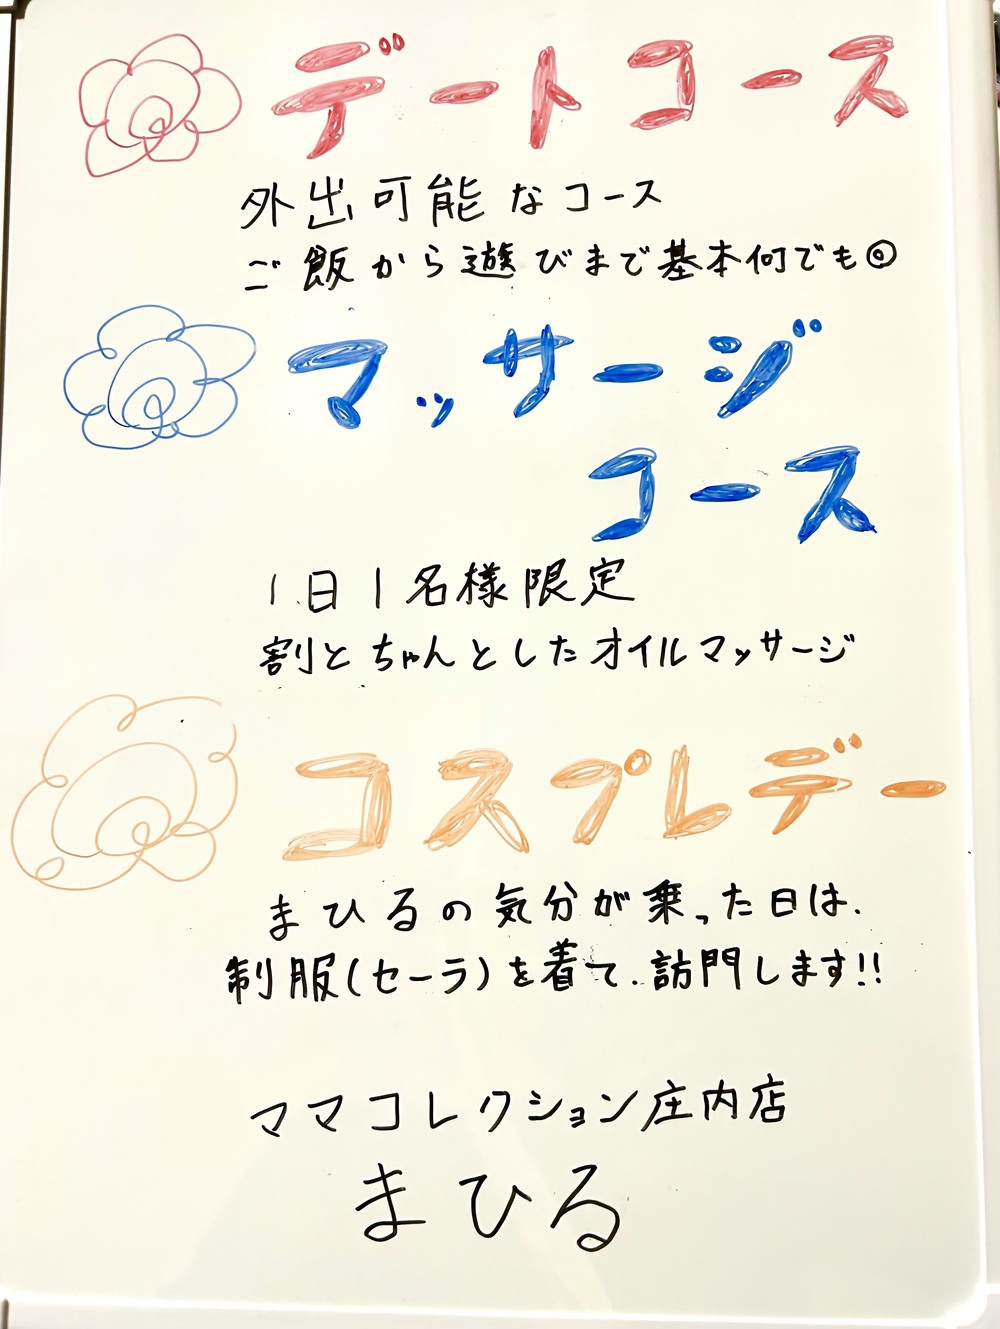 デートコース
外出可能なコース
ご飯から遊びまで基本何でも◎
マッサージ
コース
1日1名様限定
割とちゃんとしたオイルマッサージ
コスプレデー
まひるの気分が乗った日は、
制服(セーラ)を着て、訪問します!!
ママコレクション庄内店
まひる